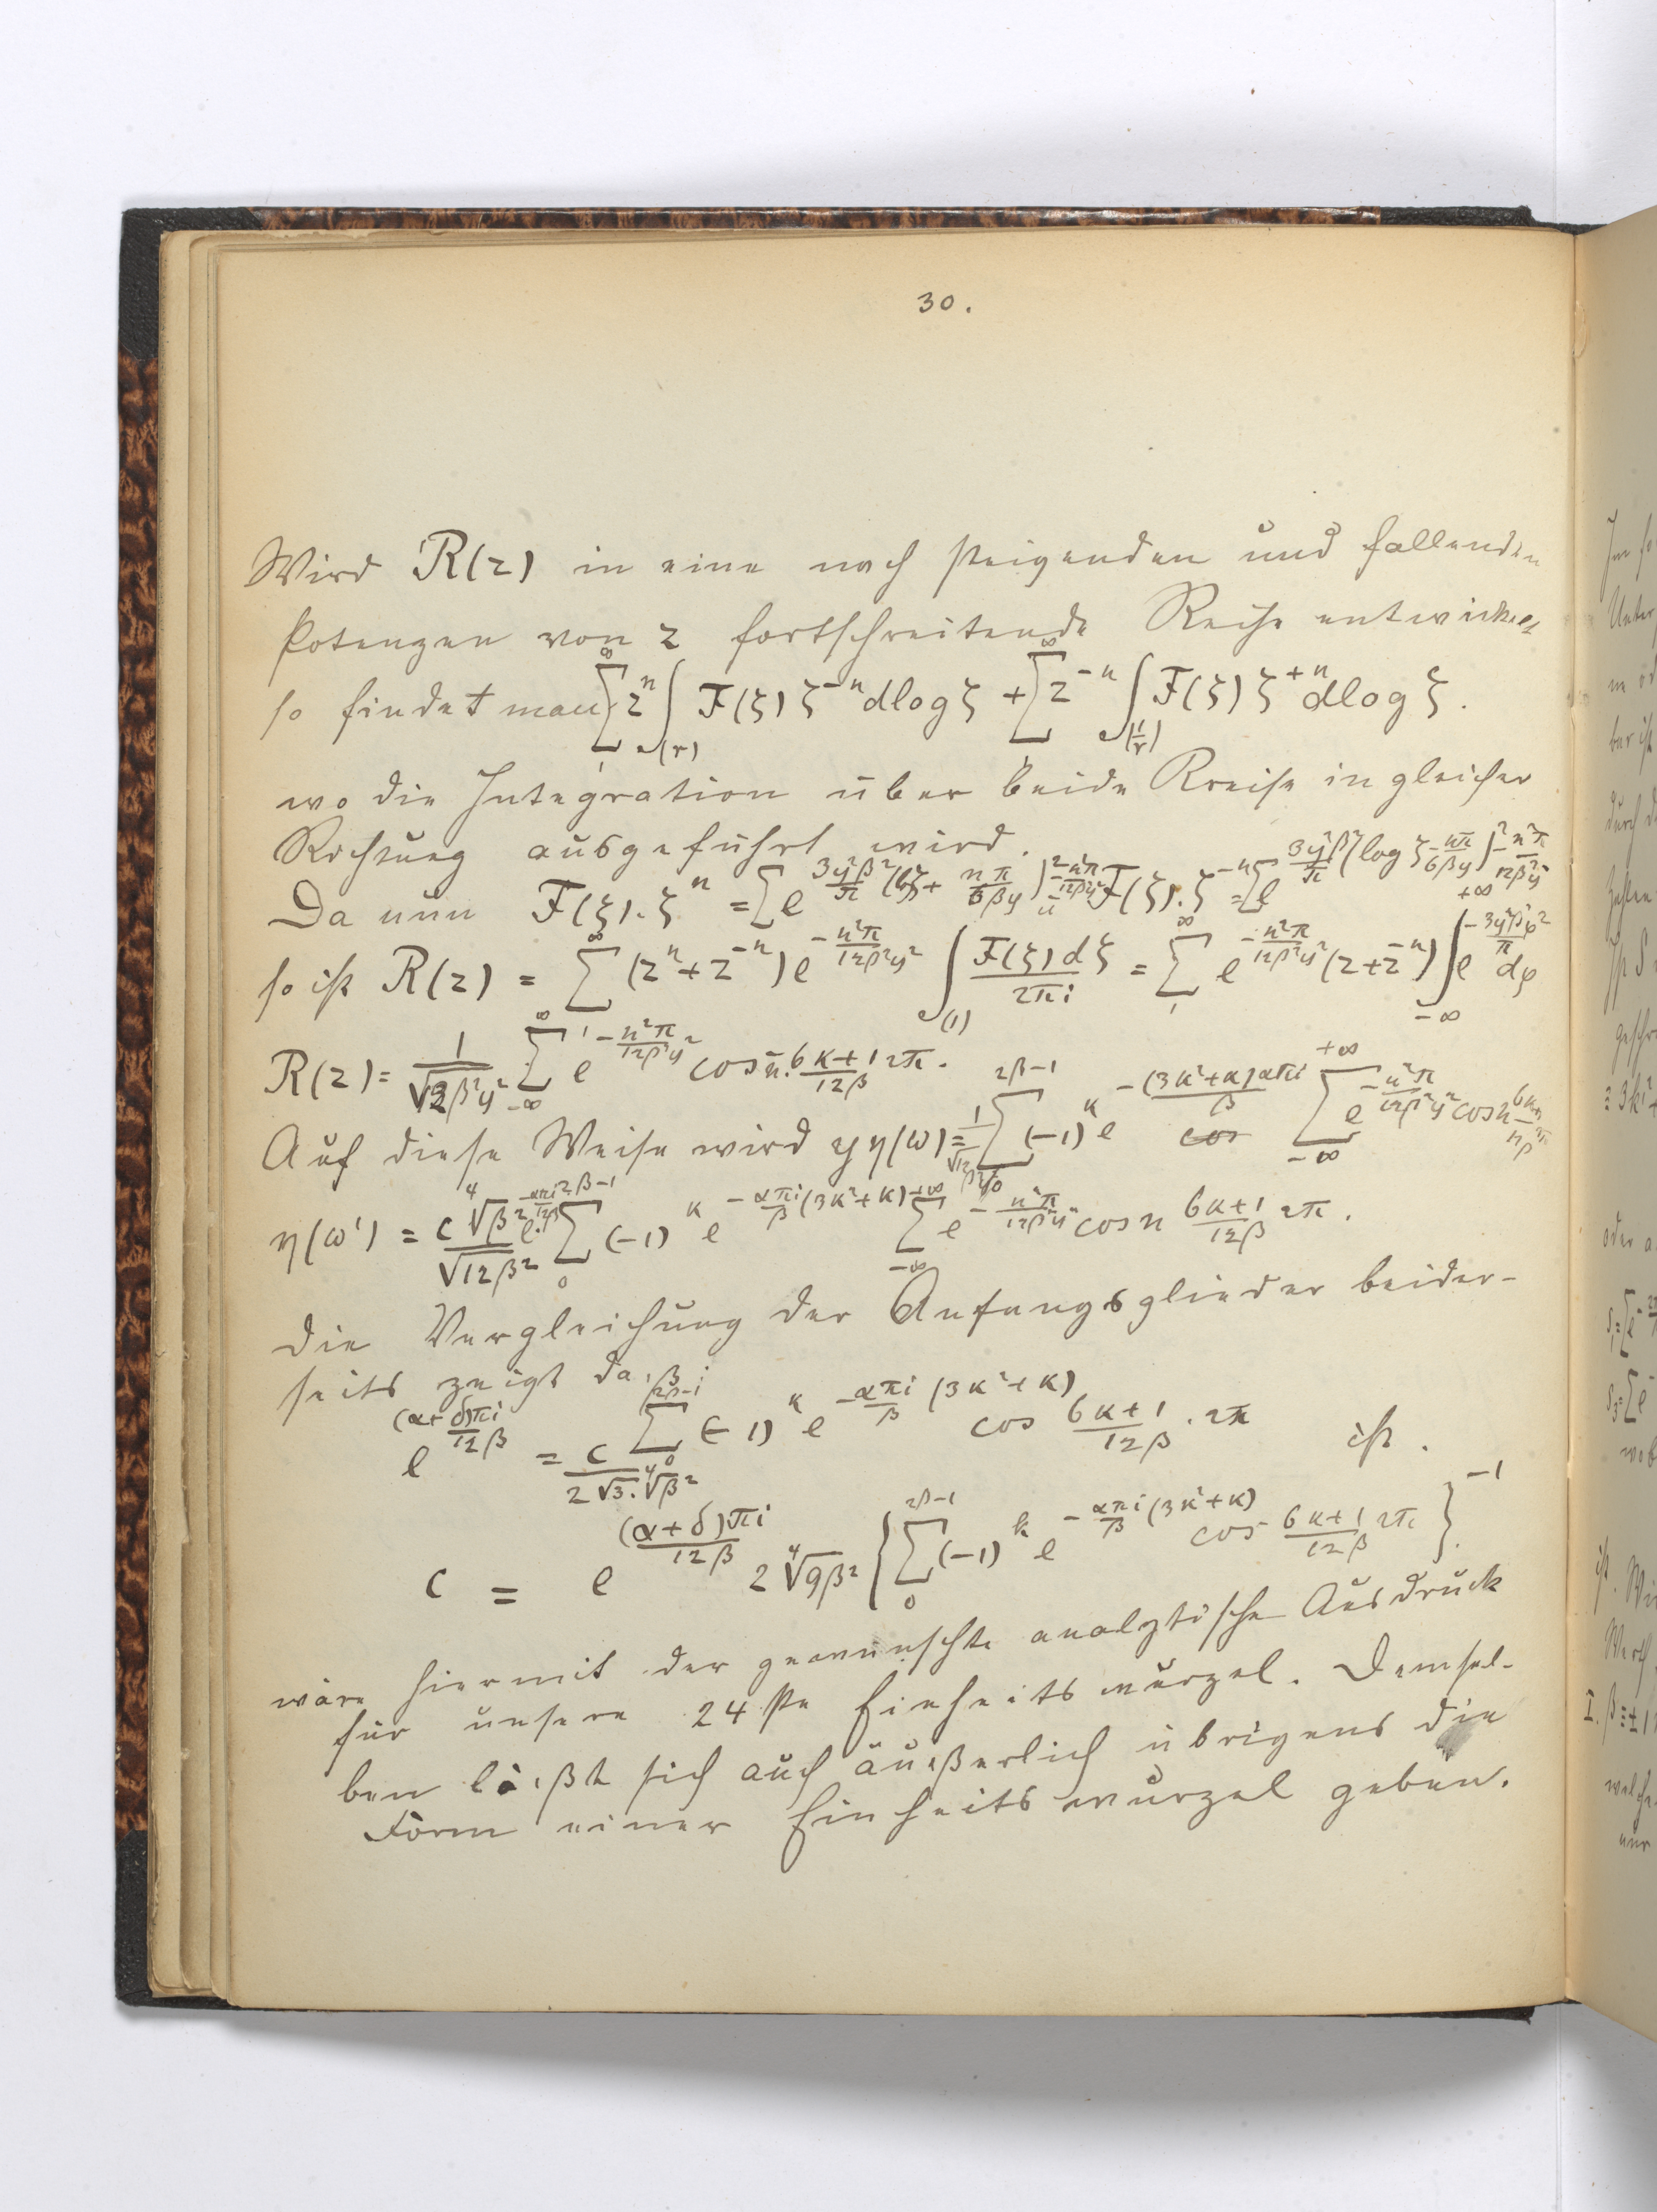 30.
Wird R(z) in eine nach steigenden und fallenden
Potenzen von z fortschreitende Reihe entwickelt
so findet man ∑_1^∞ z^n ∫_(r) F(ξ) ζ^{-n} dlog ζ + ∑_1^∞ z^{-n} ∫_(1/r) F(ξ) ζ^{+n} dlog ζ.
wo die Integration über beide Kreise in gleicher
Richtung ausgeführt wird.
Da nun F(ξ).ζ^n = ∑ e^{3y²β²/π (lζ + nπ/6βy)² - n²π/12β²y²} u F(ζ).ζ^{-n} = ∑ e^{3y²β²/π (log ζ - nπ/6βy)² - n²π/12β²y²}
so ist R(z) = ∑_1^∞ (z^n + z^{-n}) e^{-n²π/12β²y²} ∫_(1) F(ξ)dζ/2πi = ∑_1^∞ e^{-n²π/12β²y²} (z+z^{-n}) ∫_{-∞}^{+∞} e^{-3y²β²φ²/π} dφ
R(z) = 1/√12β²y² ∑_{-∞}^∞ e^{-n²π/12β²y²} cos n. 6κ+1/12β 2π.
Auf diese Weise wird y η(ω) = 1/√12β²y² ∑_0^{2β-1} (-1)^κ e^{-(3κ²+κ)απi/β} ∑_{-∞}^{+∞} e^{-n²π/12β²y²} cos n 6κ+1/12β 2π
η(ω') = c ∜β² e^{-απi/12β}/√12β² ∑_0^{2β-1} (-1)^κ e^{-απi/β (3κ²+κ)} ∑_{-∞}^{+∞} e^{-n²π/12β²y²} cos n 6κ+1/12β 2π.
Die Vergleichung der Anfangsglieder beider-
seits zeigt daß:
e^{(α+δ)πi/12β} = c/2√3.∜β² ∑_0^{2β-1} (-1)^κ e^{-απi/β (3κ²+κ)} cos 6κ+1/12β . 2π ist.
c = e^{(α+δ)πi/12β} 2 ∜9β² {∑_0^{2β-1} (-1)^k e^{-απi/β (3κ²+κ)} cos 6κ+1/12β 2π}^{-1}.
wäre hiermit der gewünschte analytische Ausdruck
für unsere 24ste Einheitswurzel. Demsel-
ben läßt sich auch äußerlich übrigens die
Form einer Einheitswurzel geben.